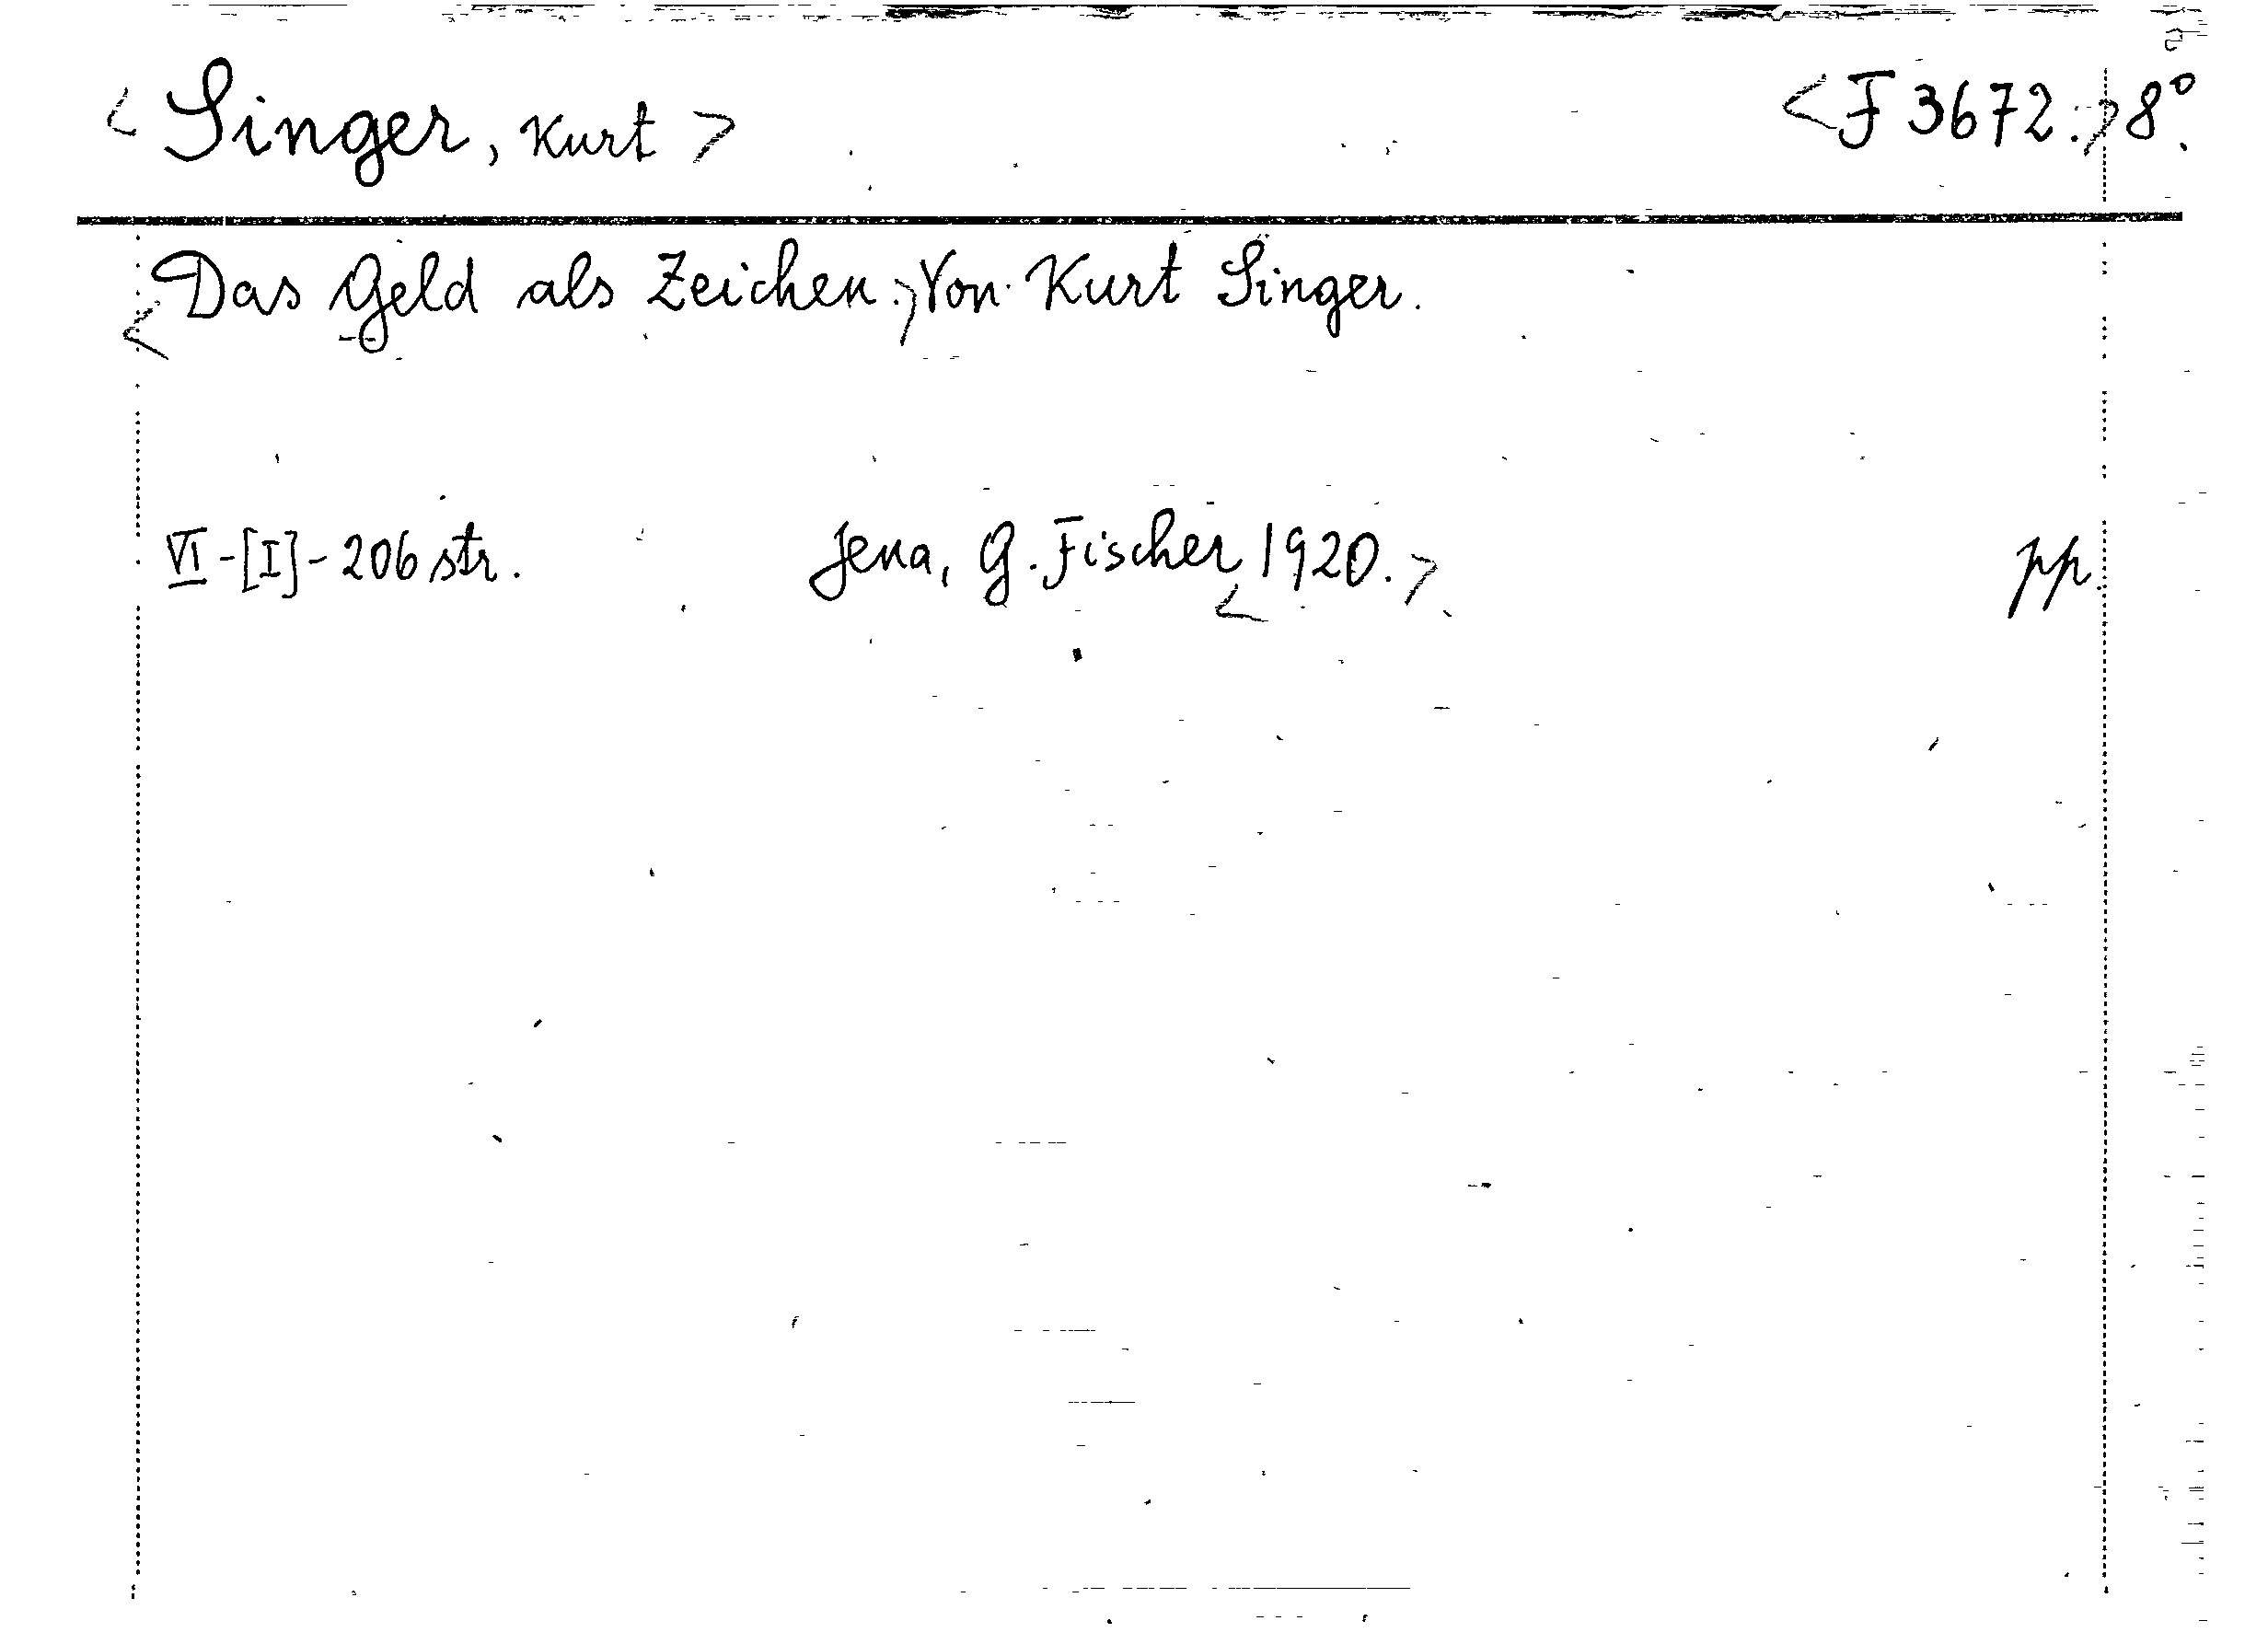 <Singer, Kurt> <F 3672.> 8°.
<Das Geld als Zeichen.> Von Kurt Singer.
VI-[I]-206 str. Jena, G. Fischer <1920.> pp.